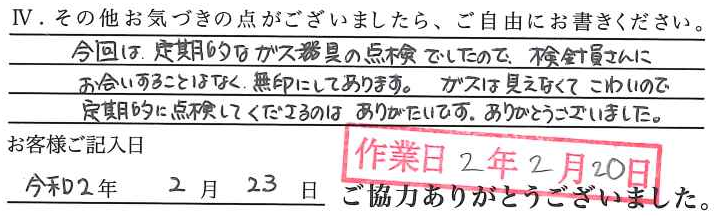 Ⅳ．その他お気づきの点がございましたら、ご自由にお書きください。
今回は、定期的なガス器具の点検でしたので、検針員さんに
お会いすることはなく、無印にしてあります。 ガスは見えなくてこわいので
定期的に点検してくださるのは ありがたいです。ありがとうございました。
お客様ご記入日
作業日 2年2月20日
令和2年 2月 23日 ご協力ありがとうございました。